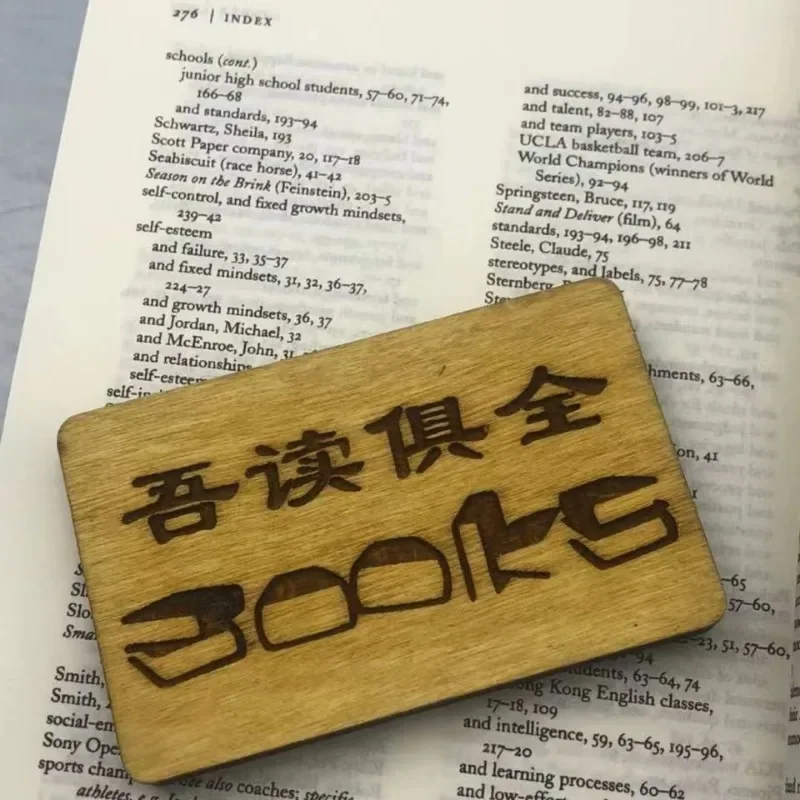 276 | INDEX
schools (cont.)
junior high school students, 57–60, 71–74,
166–68
and standards, 193–94
Schwartz, Sheila, 193
Scott Paper company, 20, 117–18
Seabiscuit (race horse), 41–42
Season on the Brink (Feinstein), 203–5
self-control, and fixed growth mindsets,
239–42
self-esteem
and failure, 33, 35–37
and fixed mindsets, 31, 32, 36–37,
224–27
and growth mindsets, 36, 37
and Jordan, Michael, 32
and McEnroe, John, 31
and relationships
self-esteem
Smith,
Smith,
Sony Ope
sports cham
See also coaches; specific
athletes, e.g.
and success, 94–96, 98–99, 101–3, 217
and talent, 82–88, 107
and team players, 103–5
UCLA basketball team, 206–7
World Champions (winners of World
Series), 92–94
Springsteen, Bruce, 117, 119
Stand and Deliver (film), 64
standards, 193–94, 196–98, 211
Steele, Claude, 75
stereotypes, and labels, 75, 77–78
Sternberg,
hments, 63–66,
on, 41
–65
57–60,
–23, 51, 57–60,
94
dents, 63–64, 74
ng Kong English classes,
17–18, 109
and intelligence, 59, 63–65, 195–96,
217–20
and learning processes, 60–62
and low-effort
吾读俱全
BOOKS